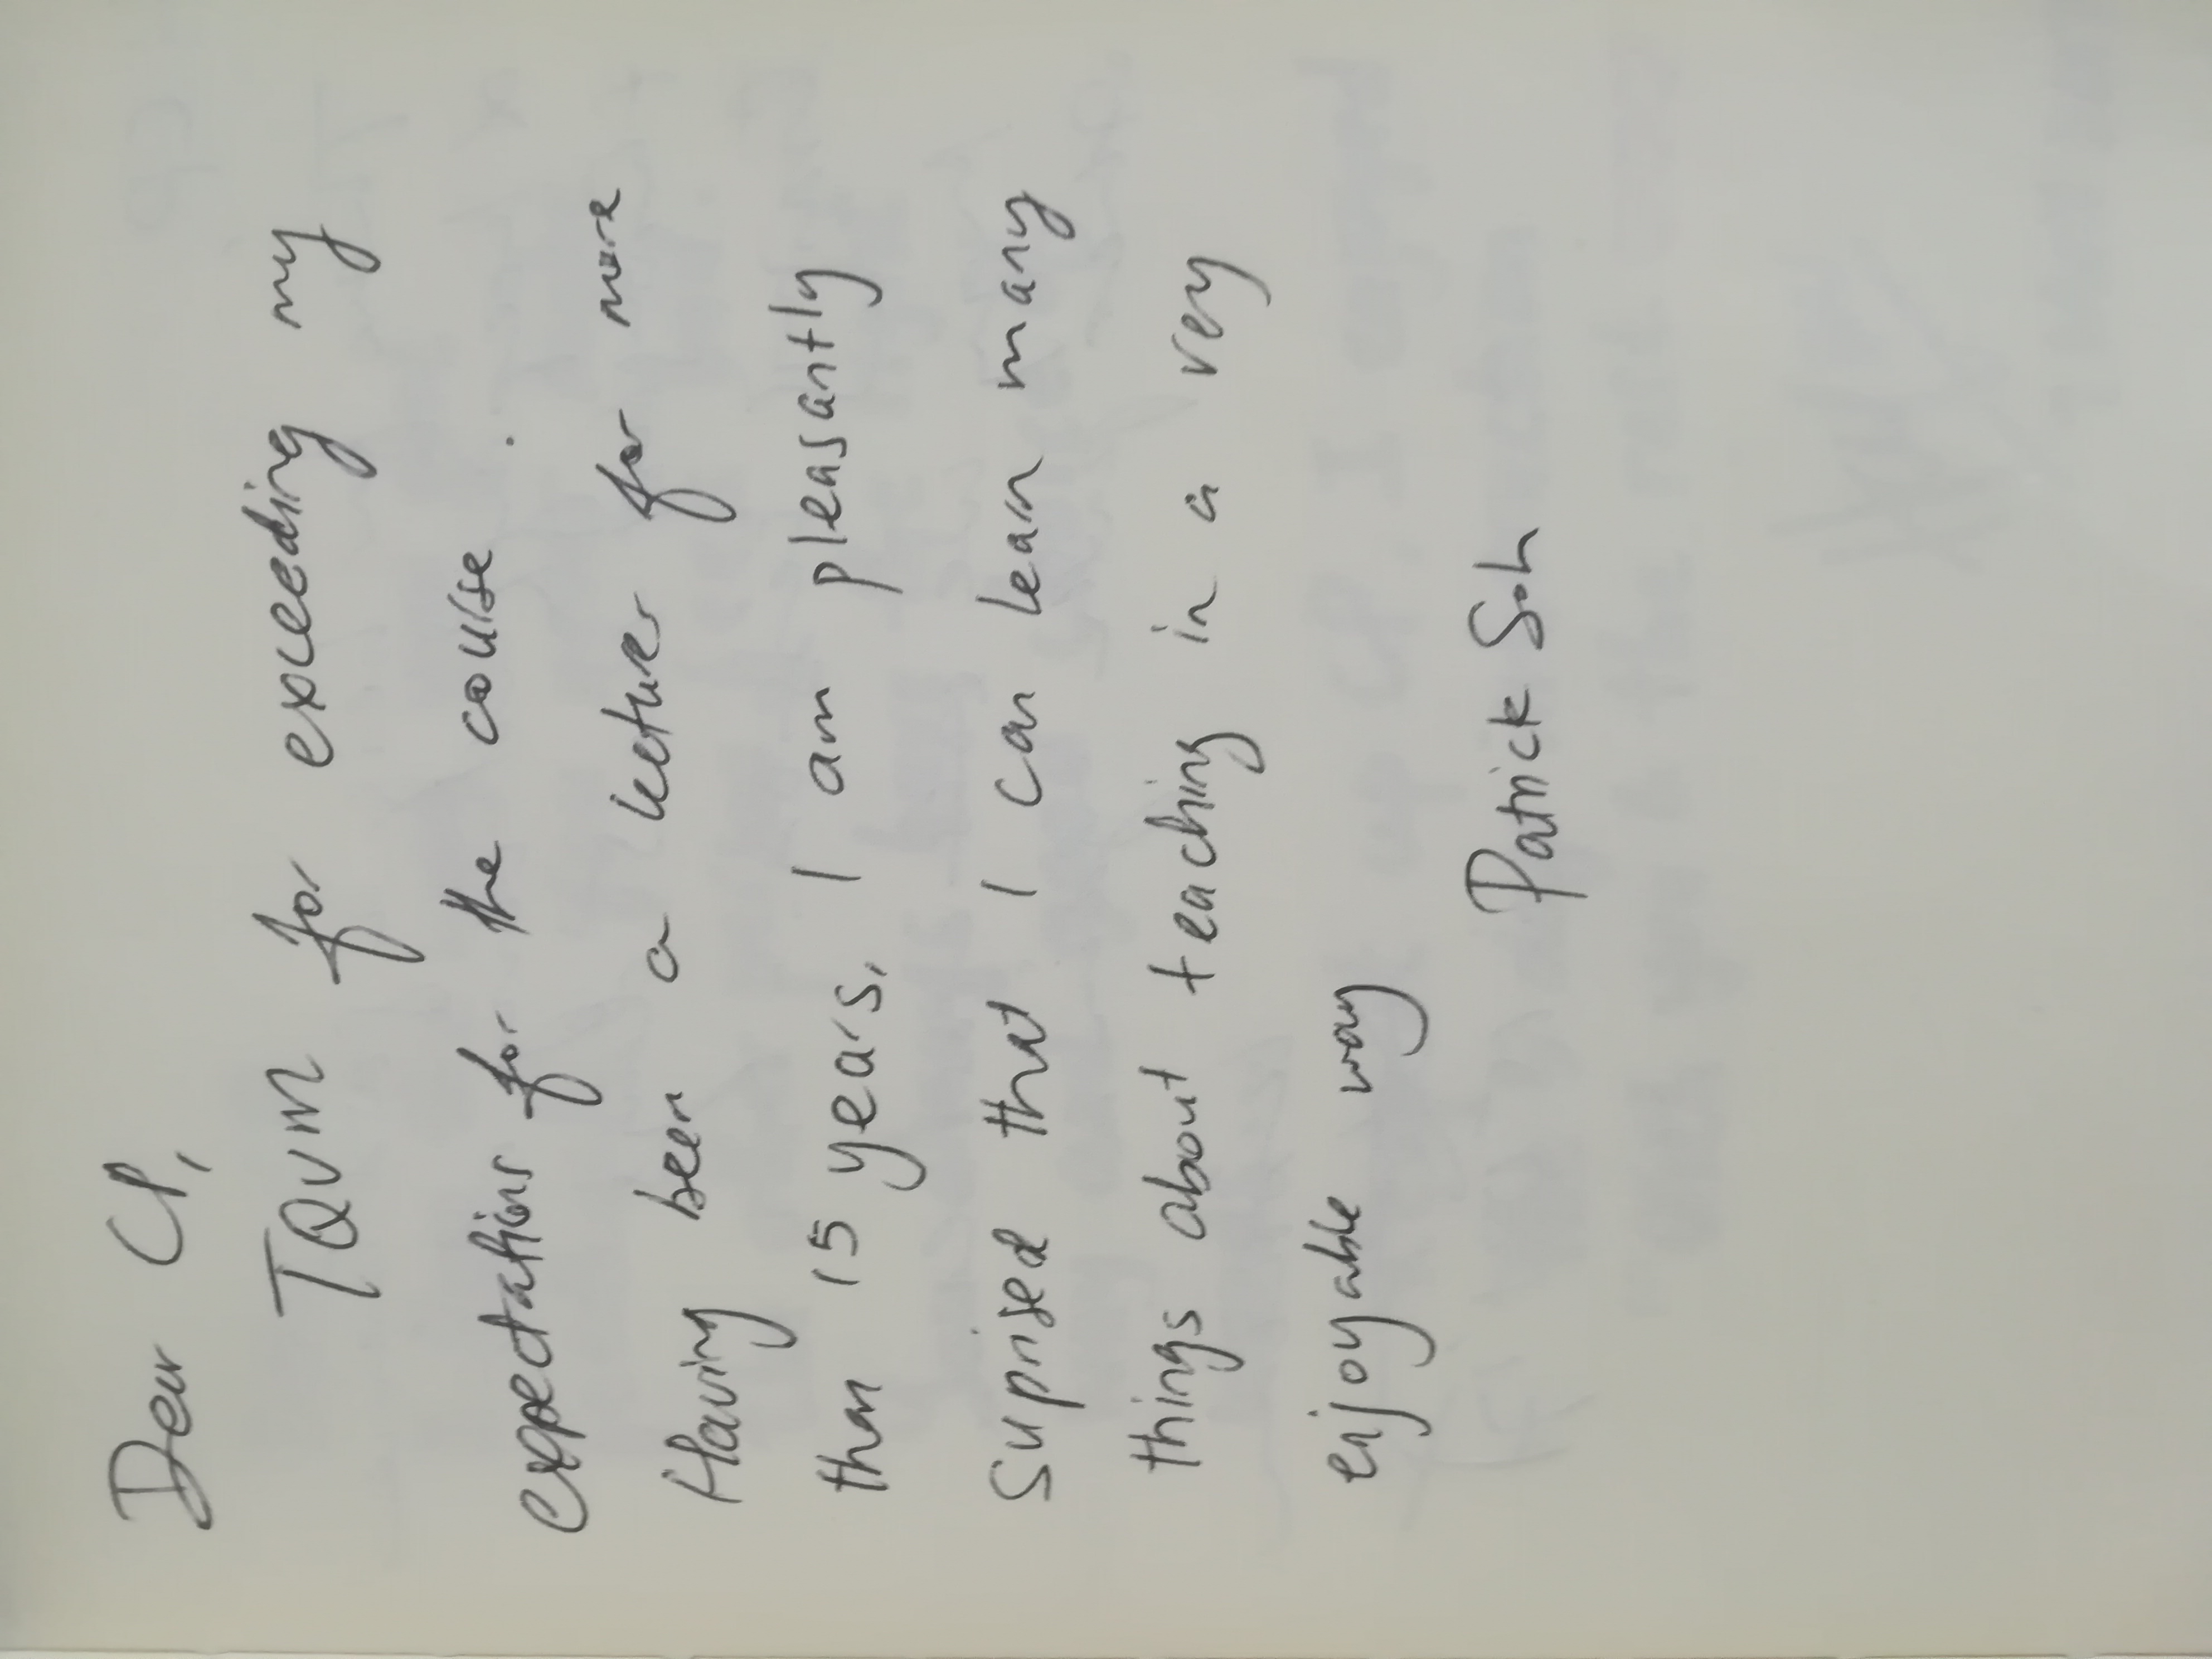 Dear CP,
TQVM for exceeding my
expectations for the course.
Having been a lecturer for more
than 15 years, I am pleasantly
suprised that I can learn many
things about teaching in a very
enjoyable way
Patrick Soh